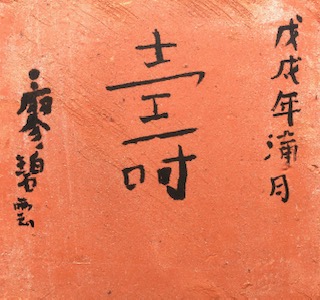 戊戌年蒲月
壽
廖碧雲